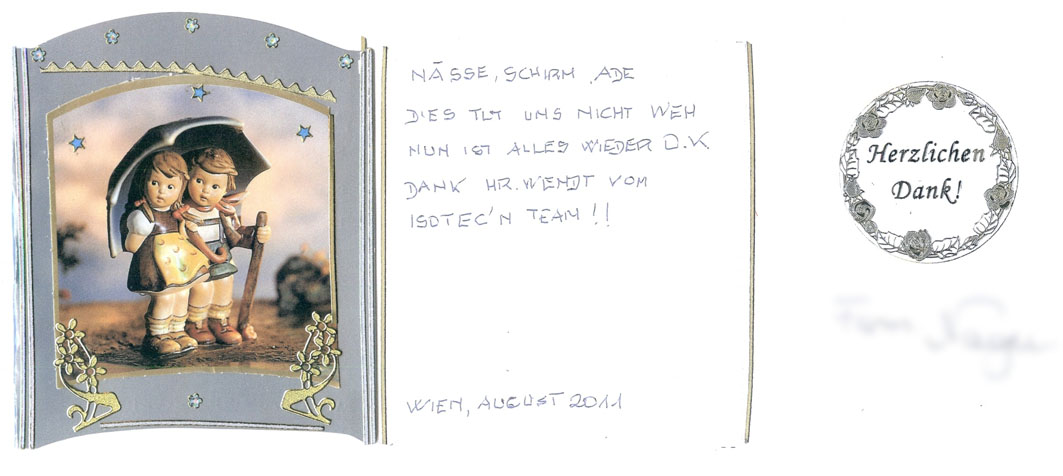 NÄSSE, SCHIRM ADE
DIES TUT UNS NICHT WEH
NUN IST ALLES WIEDER O.K
DANK HR. WENDT VOM
ISOTEC'N TEAM!!
WIEN, AUGUST 2011
Herzlichen
Dank!